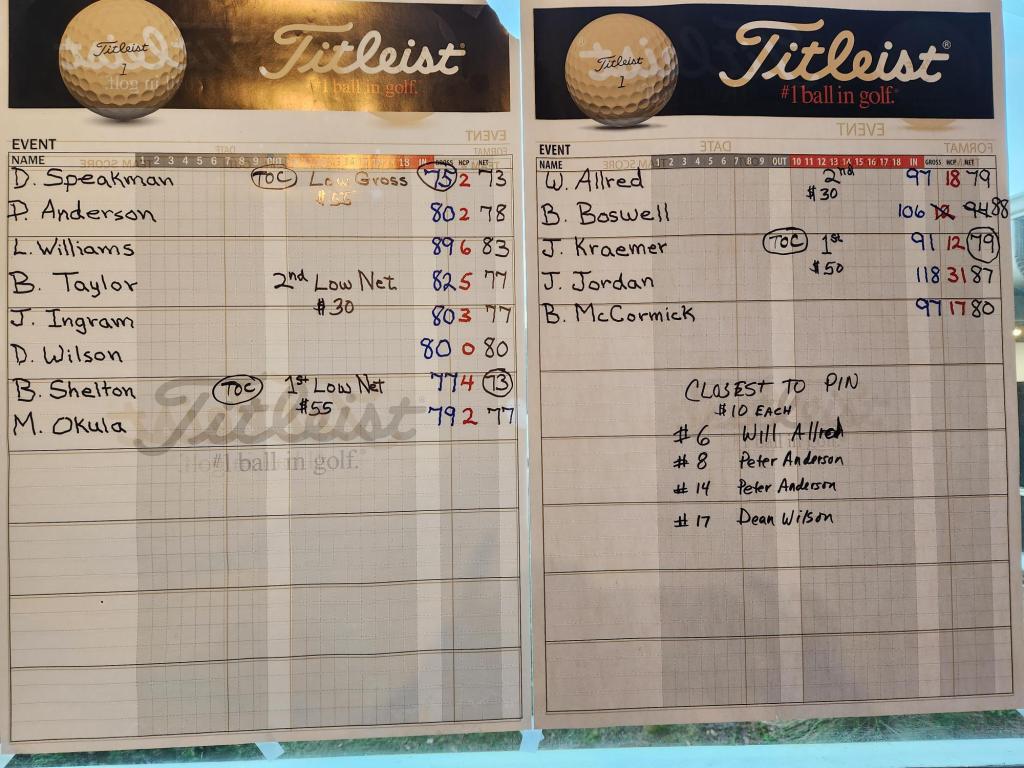 Titleist
1
Titleist
#1 ball in golf.
EVENT
NAME 1 2 3 4 5 6 7 8 9 OUT 18 IN GROSS HCP NET
D. Speakman TOC Low Gross 75 2 73
P. Anderson 80 2 78
L. Williams 89 6 83
B. Taylor 2nd Low Net 82 5 77
$30
J. Ingram 80 3 77
D. Wilson 80 0 80
B. Shelton TOC 1st Low Net 77 4 73
$55
M. Okula 79 2 77
Titleist
#1 ball in golf.
Titleist
1
Titleist®
#1 ball in golf.
EVENT
NAME 1 2 3 4 5 6 7 8 9 OUT 10 11 12 13 14 15 16 17 18 IN GROSS HCP NET
W. Allred 2nd 97 18 79
$30
B. Boswell 106 88
J. Kraemer TOC 1st 91 12 79
$50
J. Jordan 118 31 87
B. McCormick 97 17 80
CLOSEST TO PIN
$10 EACH
#6 Will Allred
#8 Peter Anderson
#14 Peter Anderson
#17 Dean Wilson